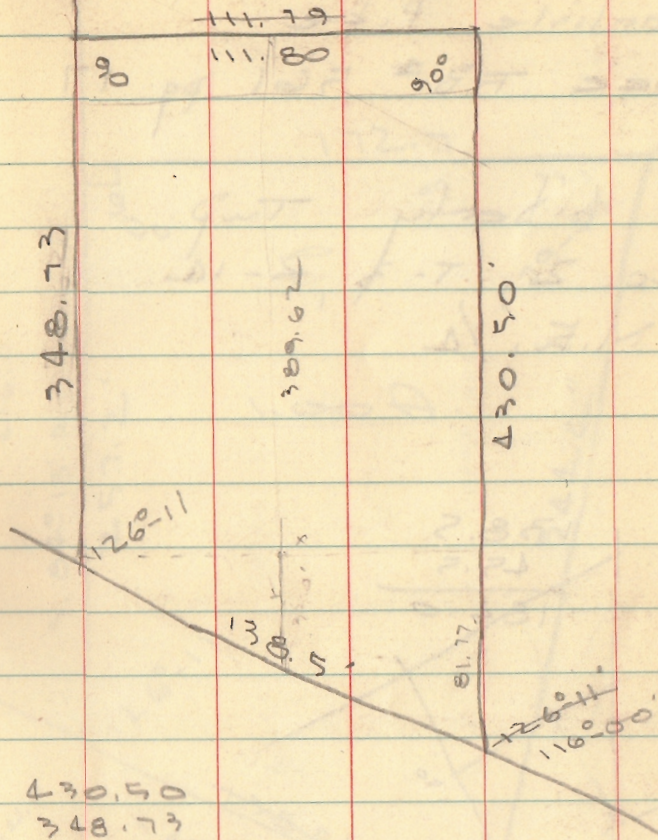 111.79
111.80
90
90°
348.73
389.62
430.50'
126°-11
138.5
81.77
126°-11'
116°-00'
430.50
348.73